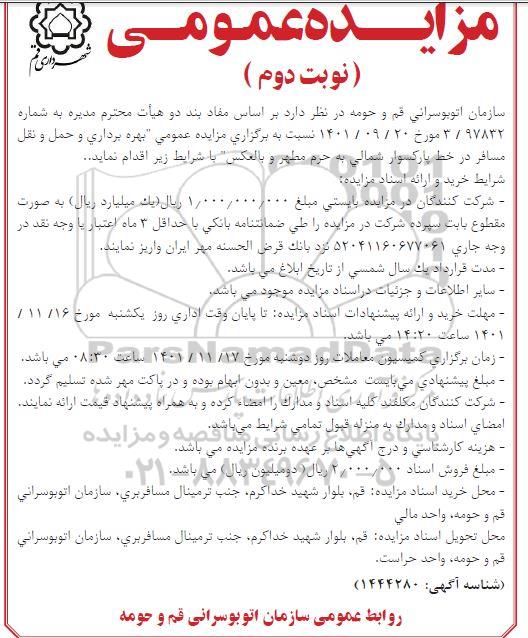 مزایده عمومی
شهرداری قم
(نوبت دوم)
سازمان اتوبوسراني قم و حومه در نظر دارد بر اساس مفاد بند دو هیأت محترم مدیره به شماره
۳ / ۹۷۸۳۲ مورخ ۲۰ / ۰۹ / ۱۴۰۱ نسبت به برگزاري مزایده عمومي "بهره برداري و حمل و نقل
مسافر در خط پارکسوار شمالي به حرم مطهر و بالعکس" با شرایط زیر اقدام نماید..
شرایط خرید و ارائه اسناد مزایده:
- شرکت کنندگان در مزایده بایستي مبلغ ۱٫۰۰۰٫۰۰۰٫۰۰۰ ریال(یك میلیارد ریال) به صورت
مقطوع بابت سپرده شرکت در مزایده را طي ضمانتنامه بانکي با حداقل ۳ ماه اعتبار یا وجه نقد در
وجه جاري ۵۲۰۴۱۱۶۰۶۷۷۰۶۱ نزد بانك قرض الحسنه مهر ایران واریز نمایند.
- مدت قرارداد یك سال شمسي از تاریخ ابلاغ مي باشد.
- سایر اطلاعات و جزئیات دراسناد مزایده موجود مي باشد.
- مهلت خرید و ارائه پیشنهادات اسناد مزایده: تا پایان وقت اداري روز یکشنبه مورخ ۱۶/ ۱۱ /
۱۴۰۱ ساعت ۱۴:۲۰ مي باشد.
- زمان برگزاري کمیسیون معاملات روز دوشنبه مورخ ۱۷/ ۱۱ / ۱۴۰۱ ساعت ۰۸:۳۰ مي باشد.
- مبلغ پیشنهادي مي‌بایست مشخص، معین و بدون ابهام بوده و در پاکت مهر شده تسلیم گردد.
- شرکت کنندگان مکلفند کلیه اسناد و مدارك را امضاء کرده و به همراه پیشنهاد قیمت ارائه نمایند.
امضاي اسناد و مدارك به منزله قبول تمامي شرایط مي‌باشد.
- هزینه کارشناسي و درج آگهي‌ها بر عهده برنده مزایده مي باشد.
- مبلغ فروش اسناد ۲٫۰۰۰٫۰۰۰ ریال( دومیلیون ریال) مي باشد.
- محل خرید اسناد مزایده: قم، بلوار شهید خداکرم، جنب ترمینال مسافربري، سازمان اتوبوسراني
قم و حومه، واحد مالي
محل تحویل اسناد مزایده: قم، بلوار شهید خداکرم، جنب ترمینال مسافربري، سازمان اتوبوسراني
قم و حومه، واحد حراست.
(شناسه آگهی: ۱۴۴۴۲۸۰)
روابط عمومی سازمان اتوبوسرانی قم و حومه
ParsNamadData
پایگاه اطلاع رسانی مناقصه و مزایده
۰۲۱-۸۸۳۴۹۶۷۰-۵